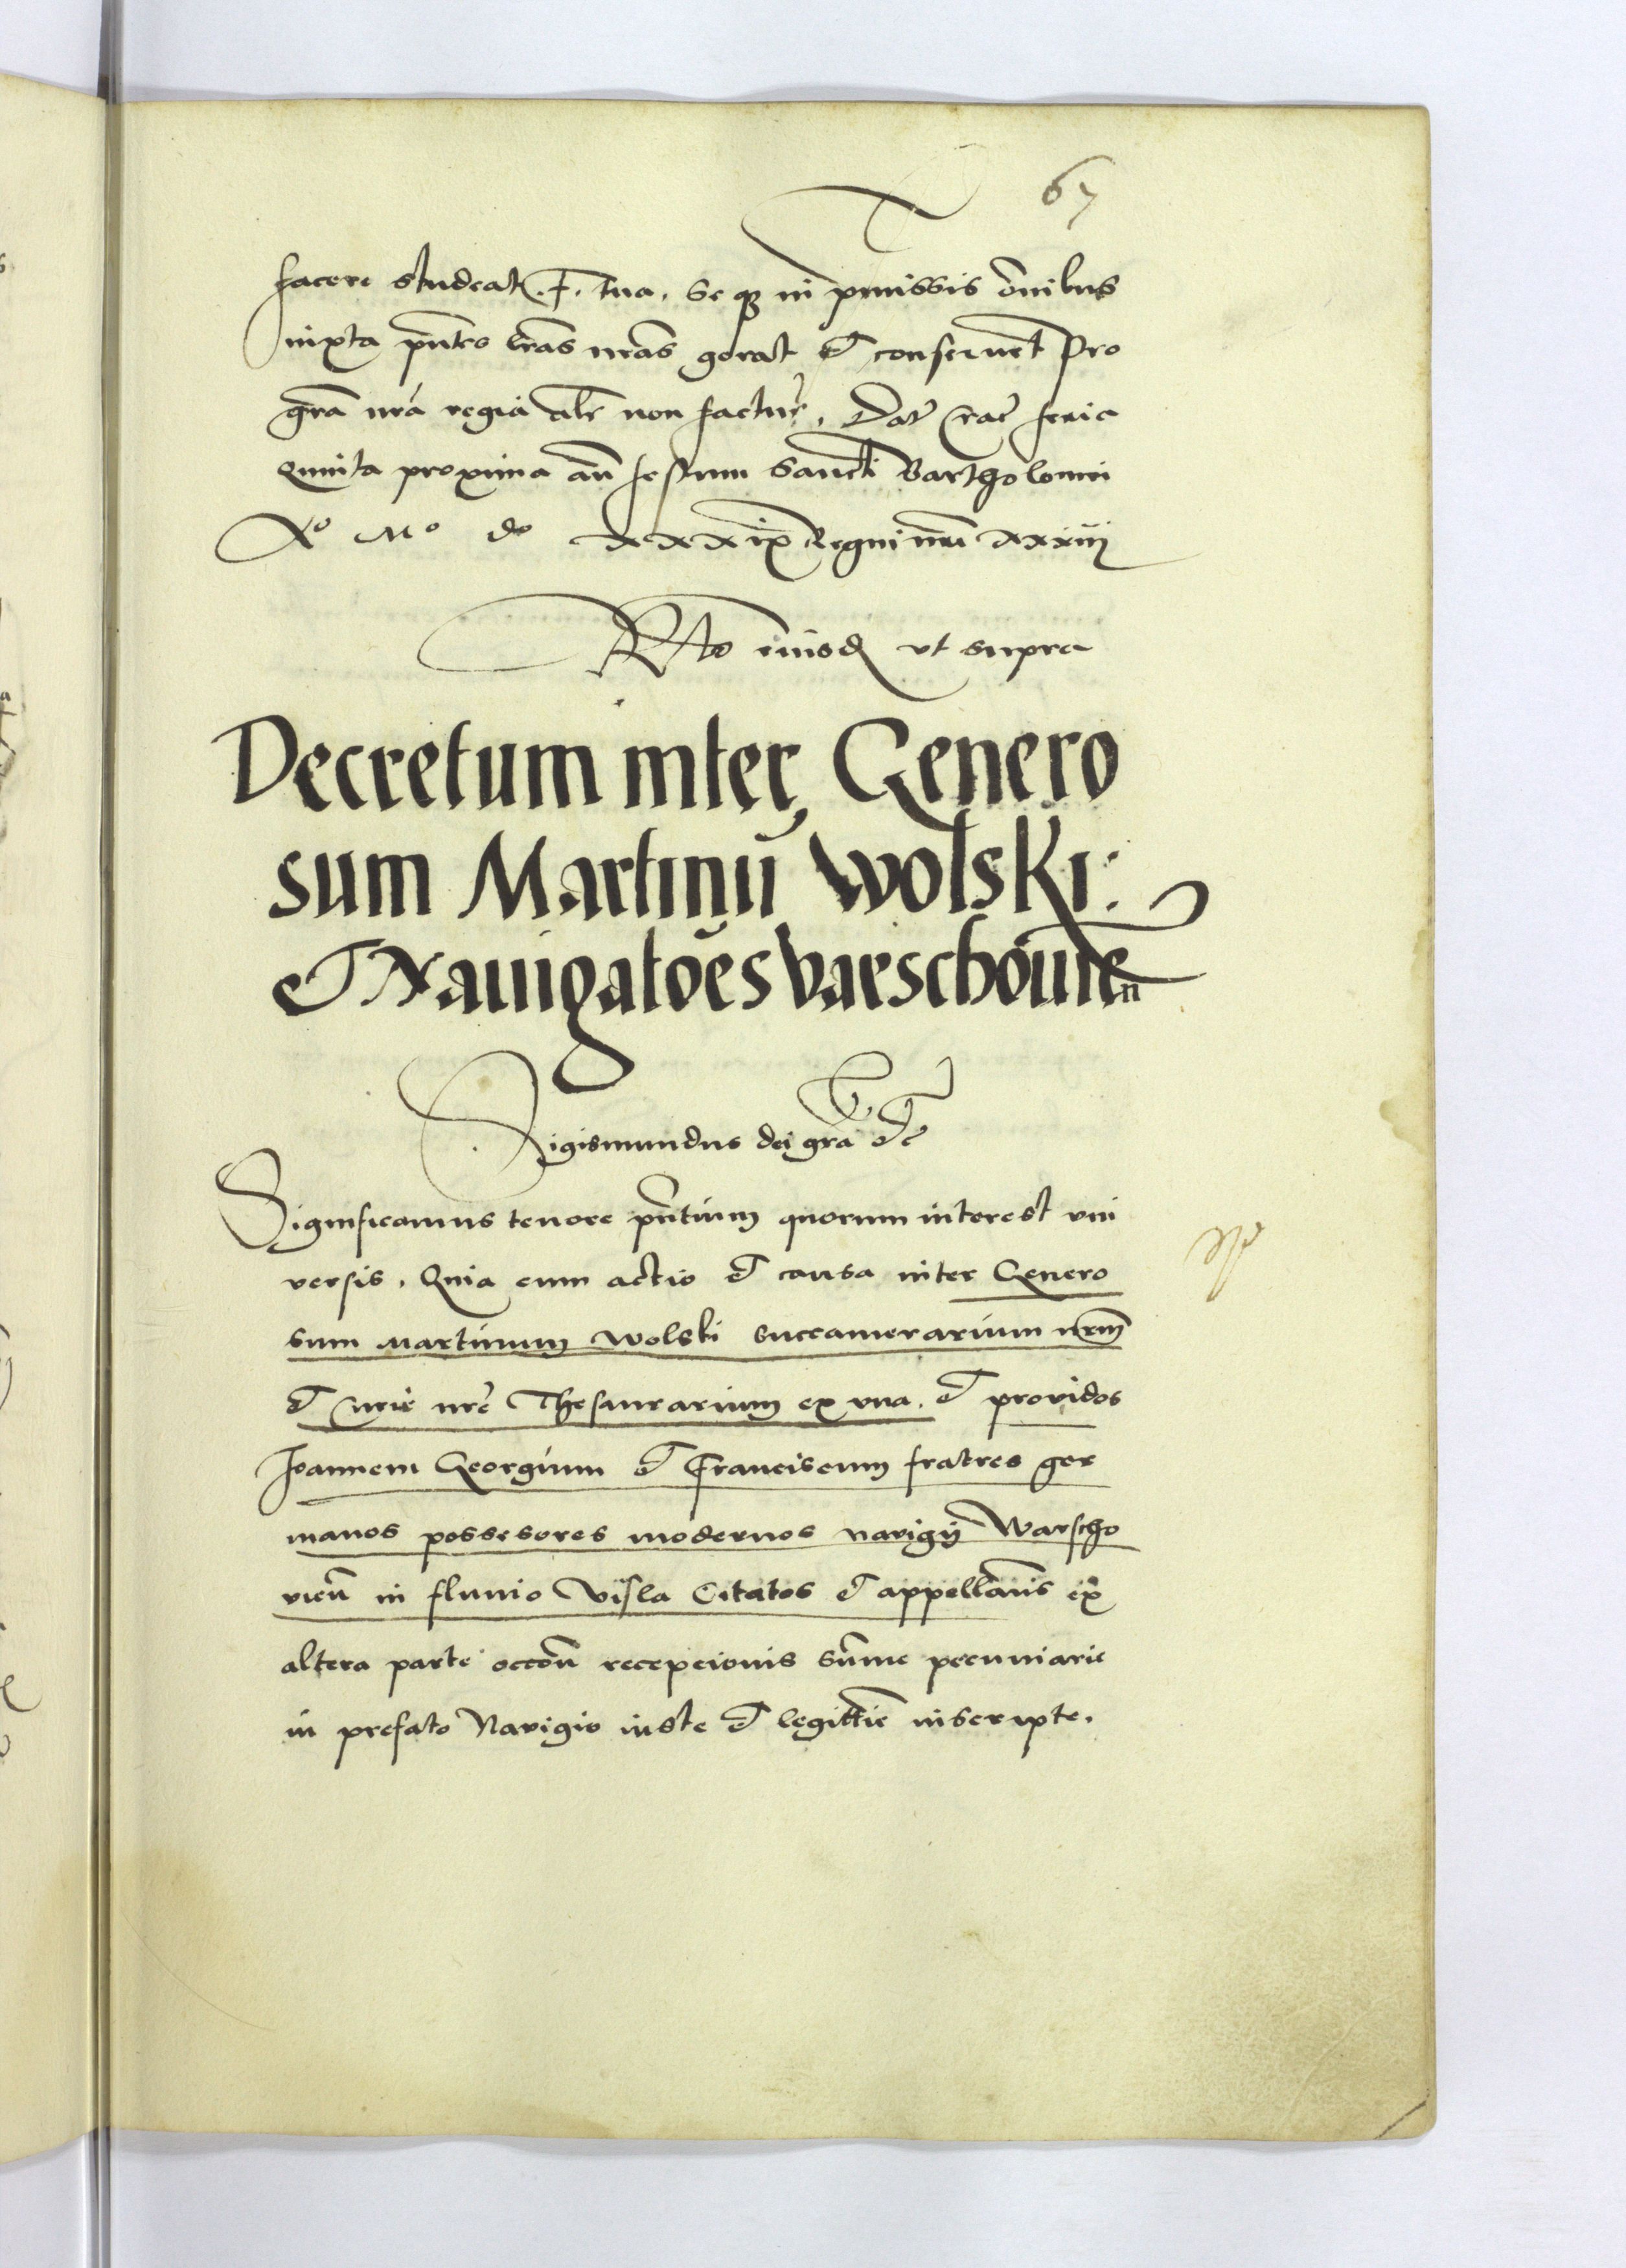 67
facere studeat .F. tua. Se q3 in p̄missis om̄ibus
iuxta pn̄tes lr̄as nr̄as gerat et conseruet Pro
gr̄a nr̄a regia alr̄ non factur̄. Dat̄ Crac̄ feria
Quinta proxima an̄ festum Sancti Bartholomei
Aº Mº dº xxxix Regni nr̄i xxxiij
Rto eiusd ut supra
Decretum inter Genero
sum Martinū Wolski:
et Nauigatōes varschouień
Sigismundus dei gr̄a etc̄
Significamus tenore pn̄tium quorum interest vni
versis. Quia cum actio et causa inter Genero
sum Martinum Wolski Succamerarium nr̄m
et Curie nr̄e Thesaurarium ex vna. et providos
Joannem Georgium et Franciscum fratres ger
manos possesores modernos navigij Warscho
vień in fluuio Visla Citatos et appellan̄s ex
altera parte occōn̄ recepcionis Sum̄e pecuniarie
in prefato Navigio iuste et legittīe inscripte.